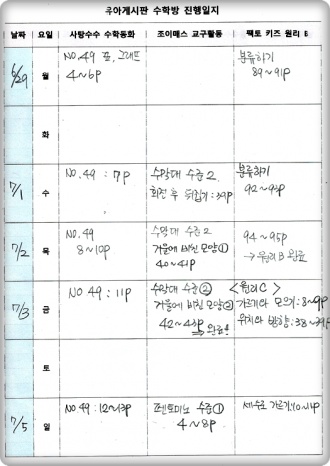 유아게시판 수학방 진행일지
날짜 요일 사탕수수 수학동화 조이매스 교구활동 팩토 키즈 원리 B
6/29 월 NO.49 표, 그래프
4~6p
분류하기
89~91p
화
7/1 수 NO.49 : 7p
수막대 수준 2
회전 후 뒤집기 : 39p
분류하기
92~93p
7/2 목 NO.49
8~10p
수막대 수준 2
거울에 비친 모양①
40~41p
94~95p
→ 원리 B 완료
7/3 금 NO 49 : 11p
수막대 수준②
거울에 비친 모양②
42~43p
⇒ 완료!
<원리 C>
가르기와 모으기 : 8~9p
위치와 방향 : 38~39p
토
7/5 일 NO.49 : 12~13p
펜토미노 수준①
4~8p
세 수로 가르기 : 10~14p